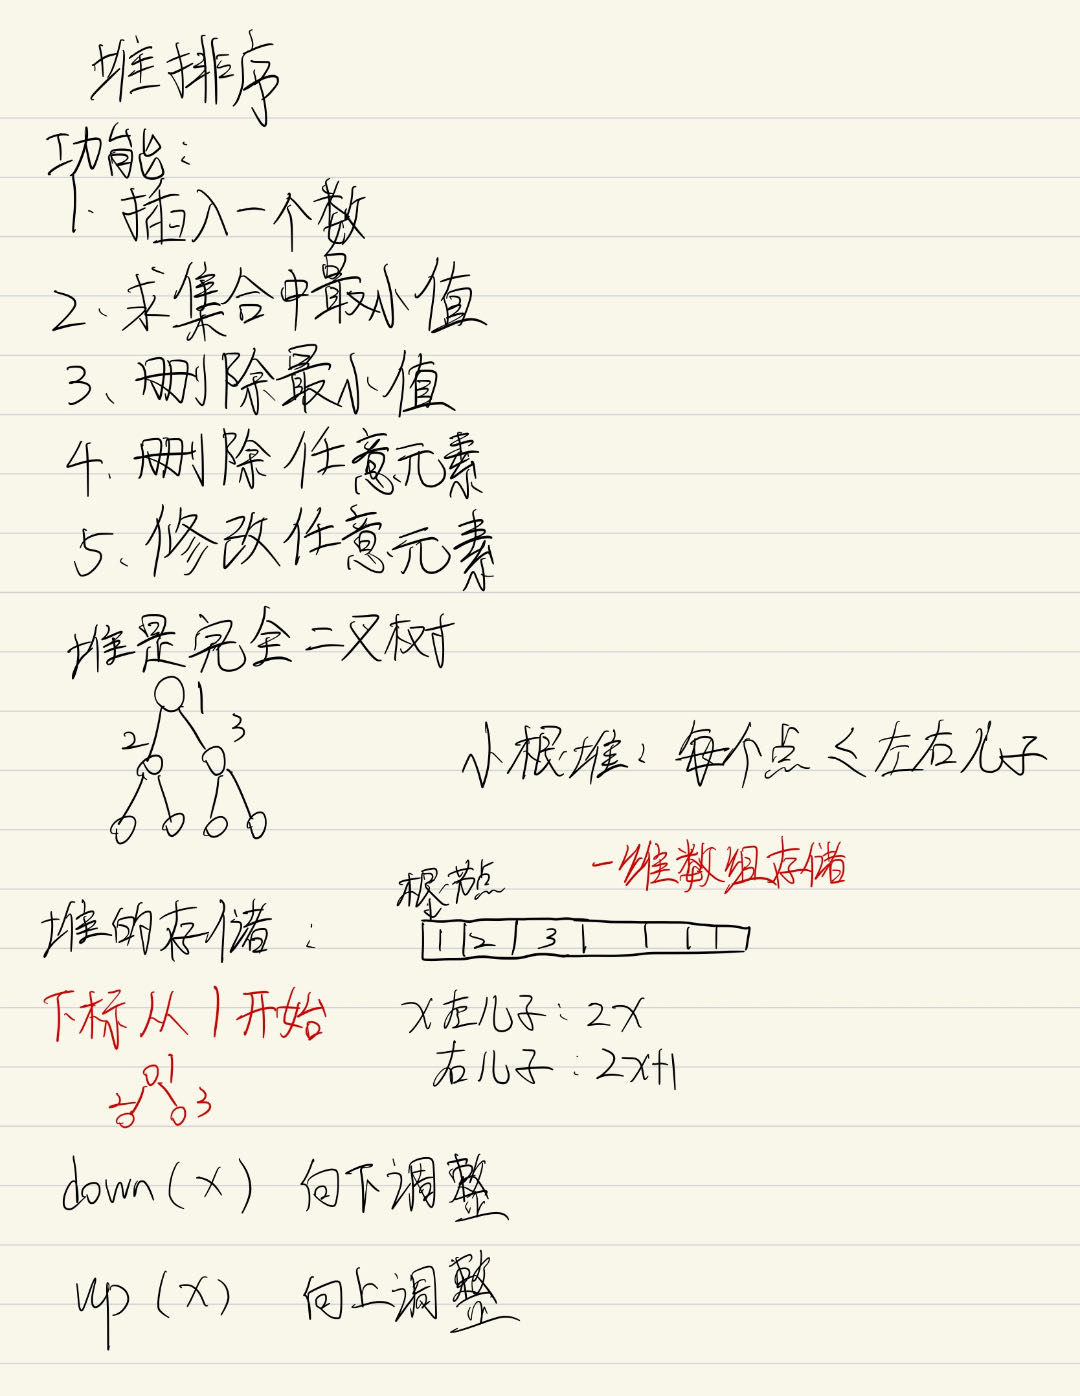 堆排序
功能：
1. 插入一个数
2、求集合中最小值
3、删除最小值
4、删除任意元素
5、修改任意元素
堆是完全二叉树
1
2 3
小根堆：每个点<左右儿子
一维数组存储
根节点
堆的存储：
1 2 3
下标从1开始
x左儿子：2x
右儿子：2x+1
1
2 3
down(x) 向下调整
up(x) 向上调整